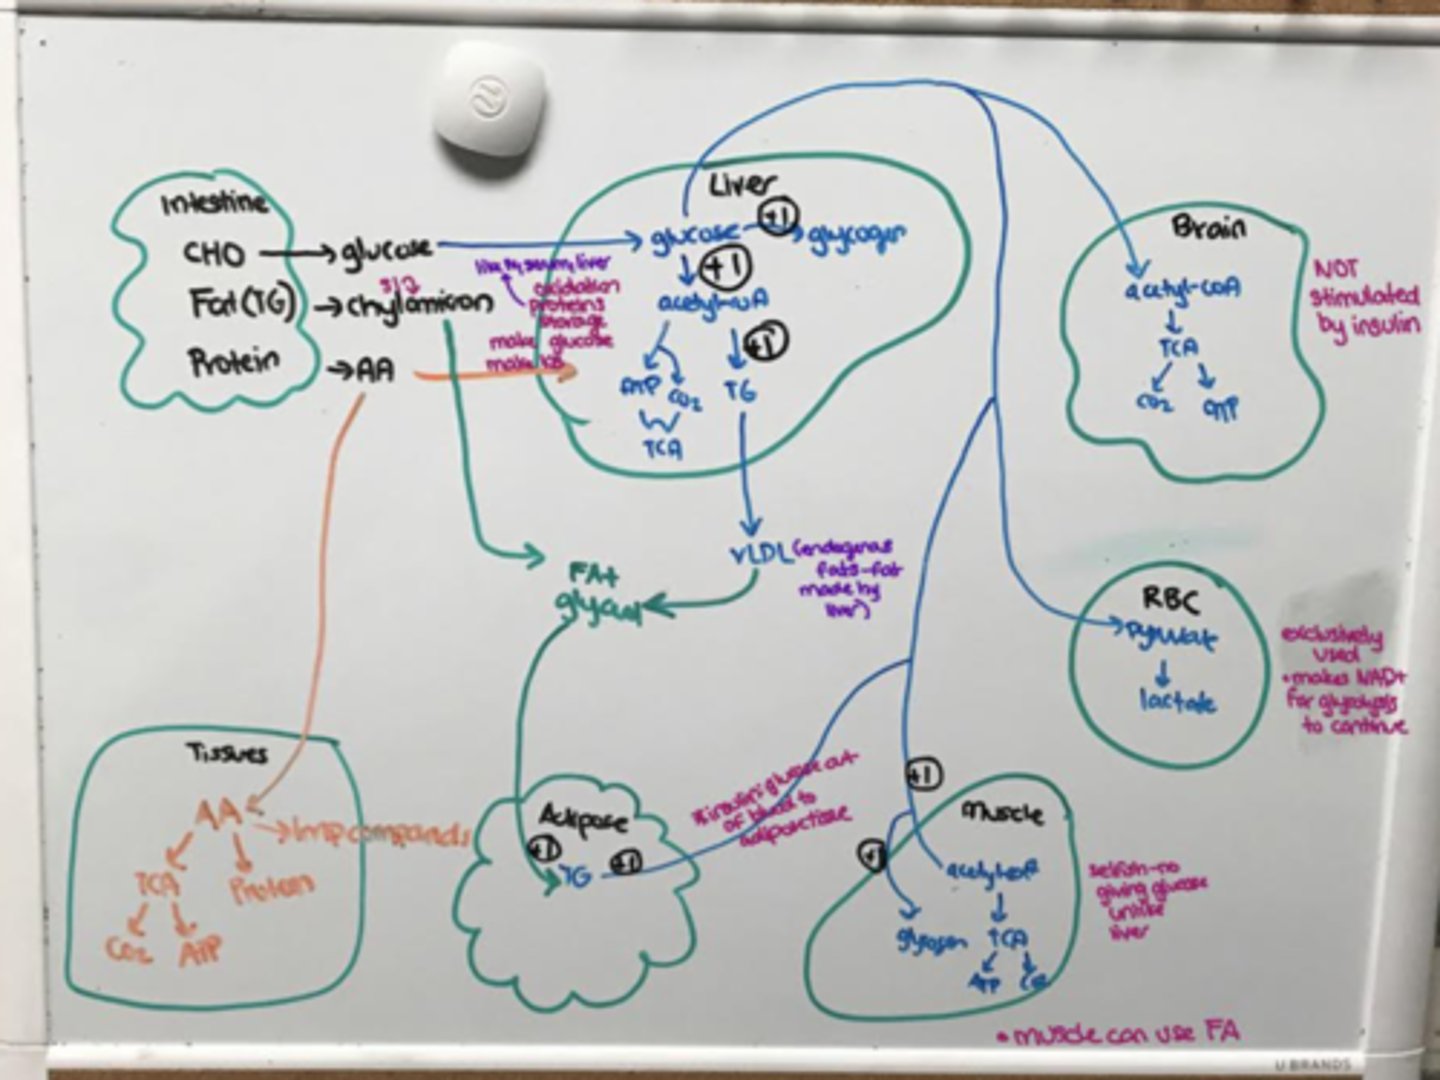 Intestine
CHO → glucose
Fat(TG) → chylomicron
Protein → AA
Liver
glucose → glycogen
+1
+1
acetyl-coA
+1
ATP CO2
TG
TCA
oxidation
proteins
storage
make glucose
VLDL (endogenous
fats-fat
made by
liver)
FA+
glycerol
Brain
acetyl-coA
TCA
CO2 ATP
NOT
stimulated
by insulin
RBC
pyruvate
lactate
exclusively
used
• makes NAD+
for glycolysis
to continue
Tissues
AA
→ Imp compounds
TCA Protein
CO2 ATP
Adipose
+1 +1
TG
insulin: glucose out
of blood to
adipose tissue
+1
+1
Muscle
acetyl-coA
glycogen TCA
ATP CO2
selfish-no
giving glucose
unlike
liver
• muscle can use FA
U BRANDS